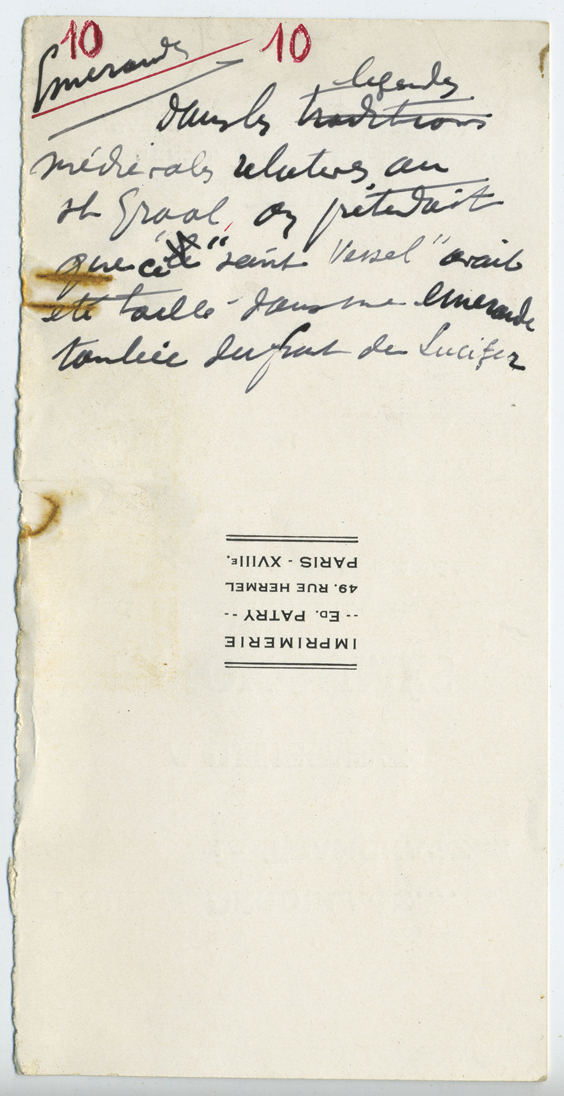 10 10
Emeraude
légendes
dans les traditions
médiévales relatives au
St Graal, on prétendait
que ce "saint Vessel" avait
été taillé dans une émeraude
tombée du front de Lucifer
IMPRIMERIE
-- ED. PATRY --
49. RUE HERMEL
PARIS - XVIIIE.